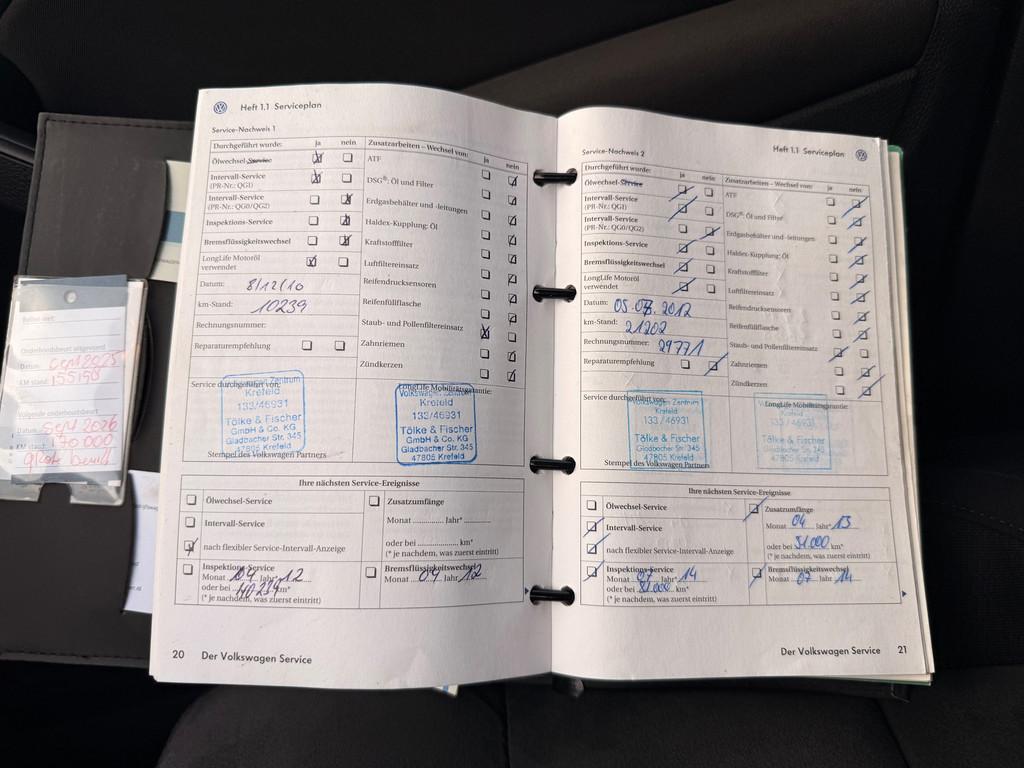 Heft 1.1 Serviceplan
Service-Nachweis 1
Durchgeführt wurde: ja nein
Ölwechsel-Service
Intervall-Service
(PR-Nr.: QG1)
Intervall-Service
(PR-Nr.: QG0/QG2)
Inspektions-Service
Bremsflüssigkeitswechsel
LongLife Motoröl
verwendet
Datum: 8/12/10
km-Stand: 10239
Rechnungsnummer:
Reparaturempfehlung
Zusatzarbeiten – Wechsel von: ja nein
ATF
DSG®: Öl und Filter
Erdgasbehälter und -leitungen
Haldex-Kupplung: Öl
Kraftstofffilter
Luftfiltereinsatz
Reifendrucksensoren
Reifenfüllflasche
Staub- und Pollenfiltereinsatz
Zahnriemen
Zündkerzen
Service durchgeführt von:
Volkswagen Zentrum
Krefeld
133/46931
Tölke & Fischer
GmbH & Co. KG
Gladbacher Str. 345
47805 Krefeld
Stempel des Volkswagen Partners
LongLife Mobilitätsgarantie:
Volkswagen Zentrum
Krefeld
133/46931
Tölke & Fischer
GmbH & Co. KG
Gladbacher Str. 345
47805 Krefeld
Ihre nächsten Service-Ereignisse
Ölwechsel-Service
Intervall-Service
nach flexibler Service-Intervall-Anzeige
Inspektions-Service
Monat 04 Jahr* 12
oder bei km*
(* je nachdem, was zuerst eintritt)
Zusatzumfänge
Monat Jahr*
oder bei km*
(* je nachdem, was zuerst eintritt)
Bremsflüssigkeitswechsel
Monat 04 Jahr 12
20 Der Volkswagen Service
Heft 1.1 Serviceplan
Service-Nachweis 2
Durchgeführt wurde: ja nein
Ölwechsel-Service
Intervall-Service
(PR-Nr.: QG1)
Intervall-Service
(PR-Nr.: QG0/QG2)
Inspektions-Service
Bremsflüssigkeitswechsel
LongLife Motoröl
verwendet
Datum: 05.07.2012
km-Stand: 21202
Rechnungsnummer: 29771
Reparaturempfehlung
Zusatzarbeiten – Wechsel von: ja nein
ATF
DSG®: Öl und Filter
Erdgasbehälter und -leitungen
Haldex-Kupplung: Öl
Kraftstofffilter
Luftfiltereinsatz
Reifendrucksensoren
Reifenfüllflasche
Staub- und Pollenfiltereinsatz
Zahnriemen
Zündkerzen
Service durchgeführt von:
Volkswagen Zentrum
Krefeld
133/46931
Tölke & Fischer
GmbH & Co. KG
Gladbacher Str. 345
47805 Krefeld
Stempel des Volkswagen Partners
LongLife Mobilitätsgarantie:
Volkswagen Zentrum
Krefeld
133/46931
Tölke & Fischer
GmbH & Co. KG
Gladbacher Str. 345
47805 Krefeld
Ihre nächsten Service-Ereignisse
Ölwechsel-Service
Intervall-Service
nach flexibler Service-Intervall-Anzeige
Inspektions-Service
Monat 07 Jahr* 14
oder bei km*
(* je nachdem, was zuerst eintritt)
Zusatzumfänge
Monat 04 Jahr* 13
oder bei 51.000 km*
(* je nachdem, was zuerst eintritt)
Bremsflüssigkeitswechsel
Monat 07 Jahr 14
Der Volkswagen Service 21
Onderhoudsbeurt uitgevoerd
Datum:
KM stand: 155198
Volgende onderhoudsbeurt
Datum: Sept 2026
KM stand: 170 000
grote beurt